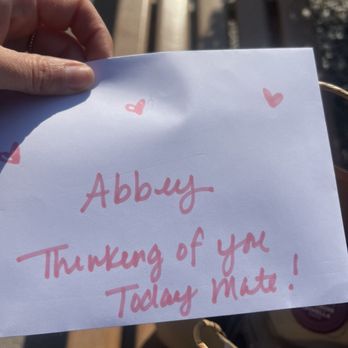 Abbey
Thinking of you
Today Mate!